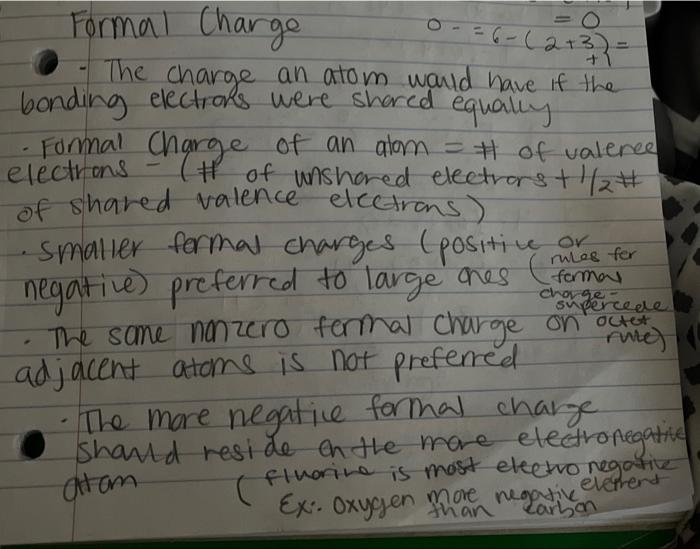 Formal Charge
= 0
0 - = 6 - (2+3) =
+1
- The charge an atom would have if the
bonding electrons were shared equally
· Formal Charge of an atom = # of valence
electrons - (# of unshared electrons + 1/2 #
of shared valence electrons)
· smaller formal charges (positive or
negative) preferred to large ones (rules for
formal
charge -
supercede
octet
rule)
· The same nonzero formal charge on
adjacent atoms is not preferred
· The more negative formal charge
should reside on the more electronegative
atom
(fluorine is most electronegative
element
Ex:. oxygen more negative
than carbon